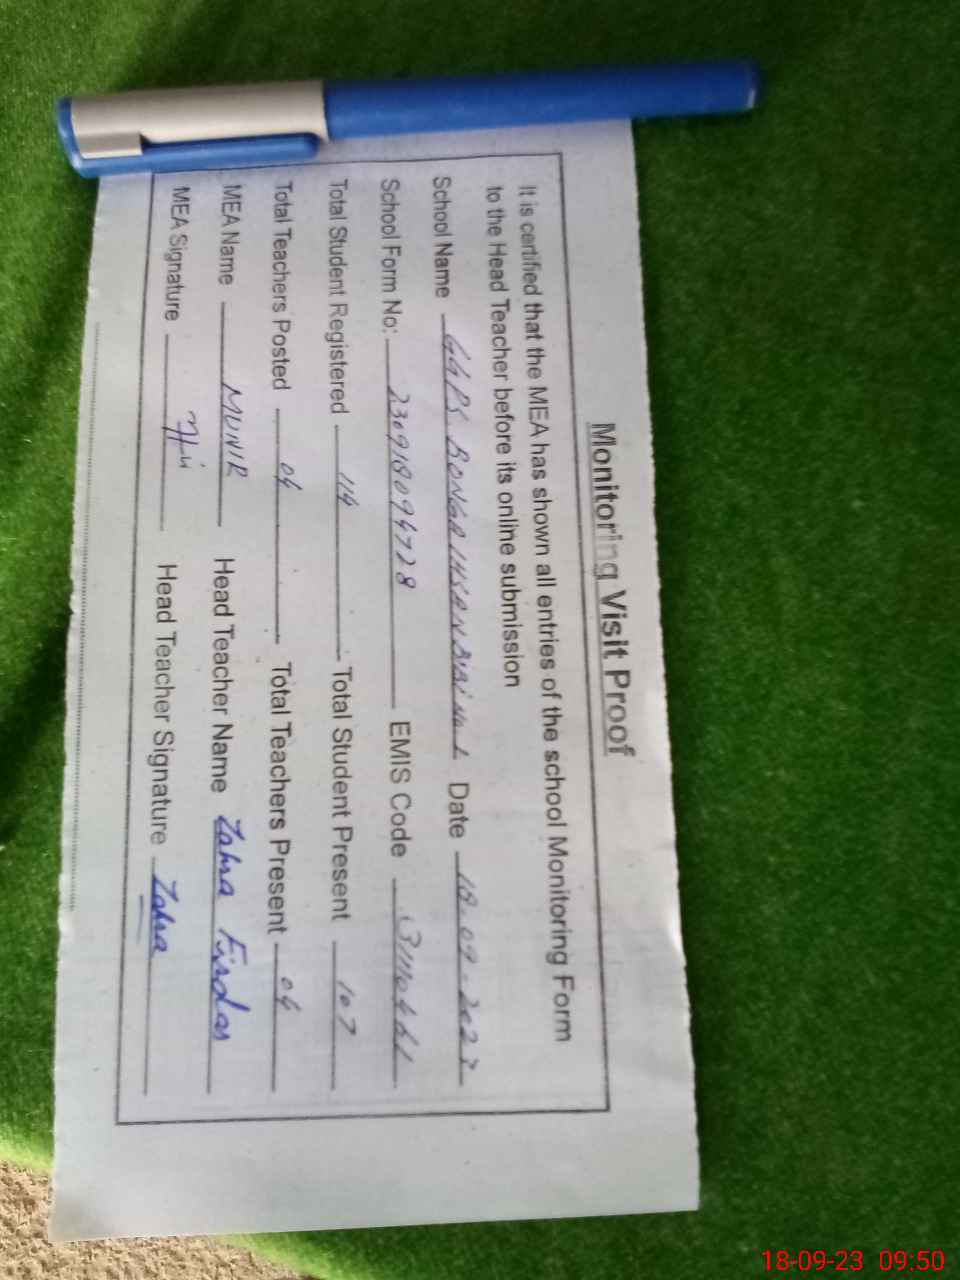 Monitoring Visit Proof
It is certified that the MEA has shown all entries of the school Monitoring Form
to the Head Teacher before its online submission
School Name GGPS Date 18-09-2023
School Form No: 230918094728 EMIS Code
Total Student Registered 114 Total Student Present 107
Total Teachers Posted 04 Total Teachers Present 04
MEA Name MUNIR Head Teacher Name Zahra Firdos
MEA Signature Head Teacher Signature Zahra
18-09-23 09:50